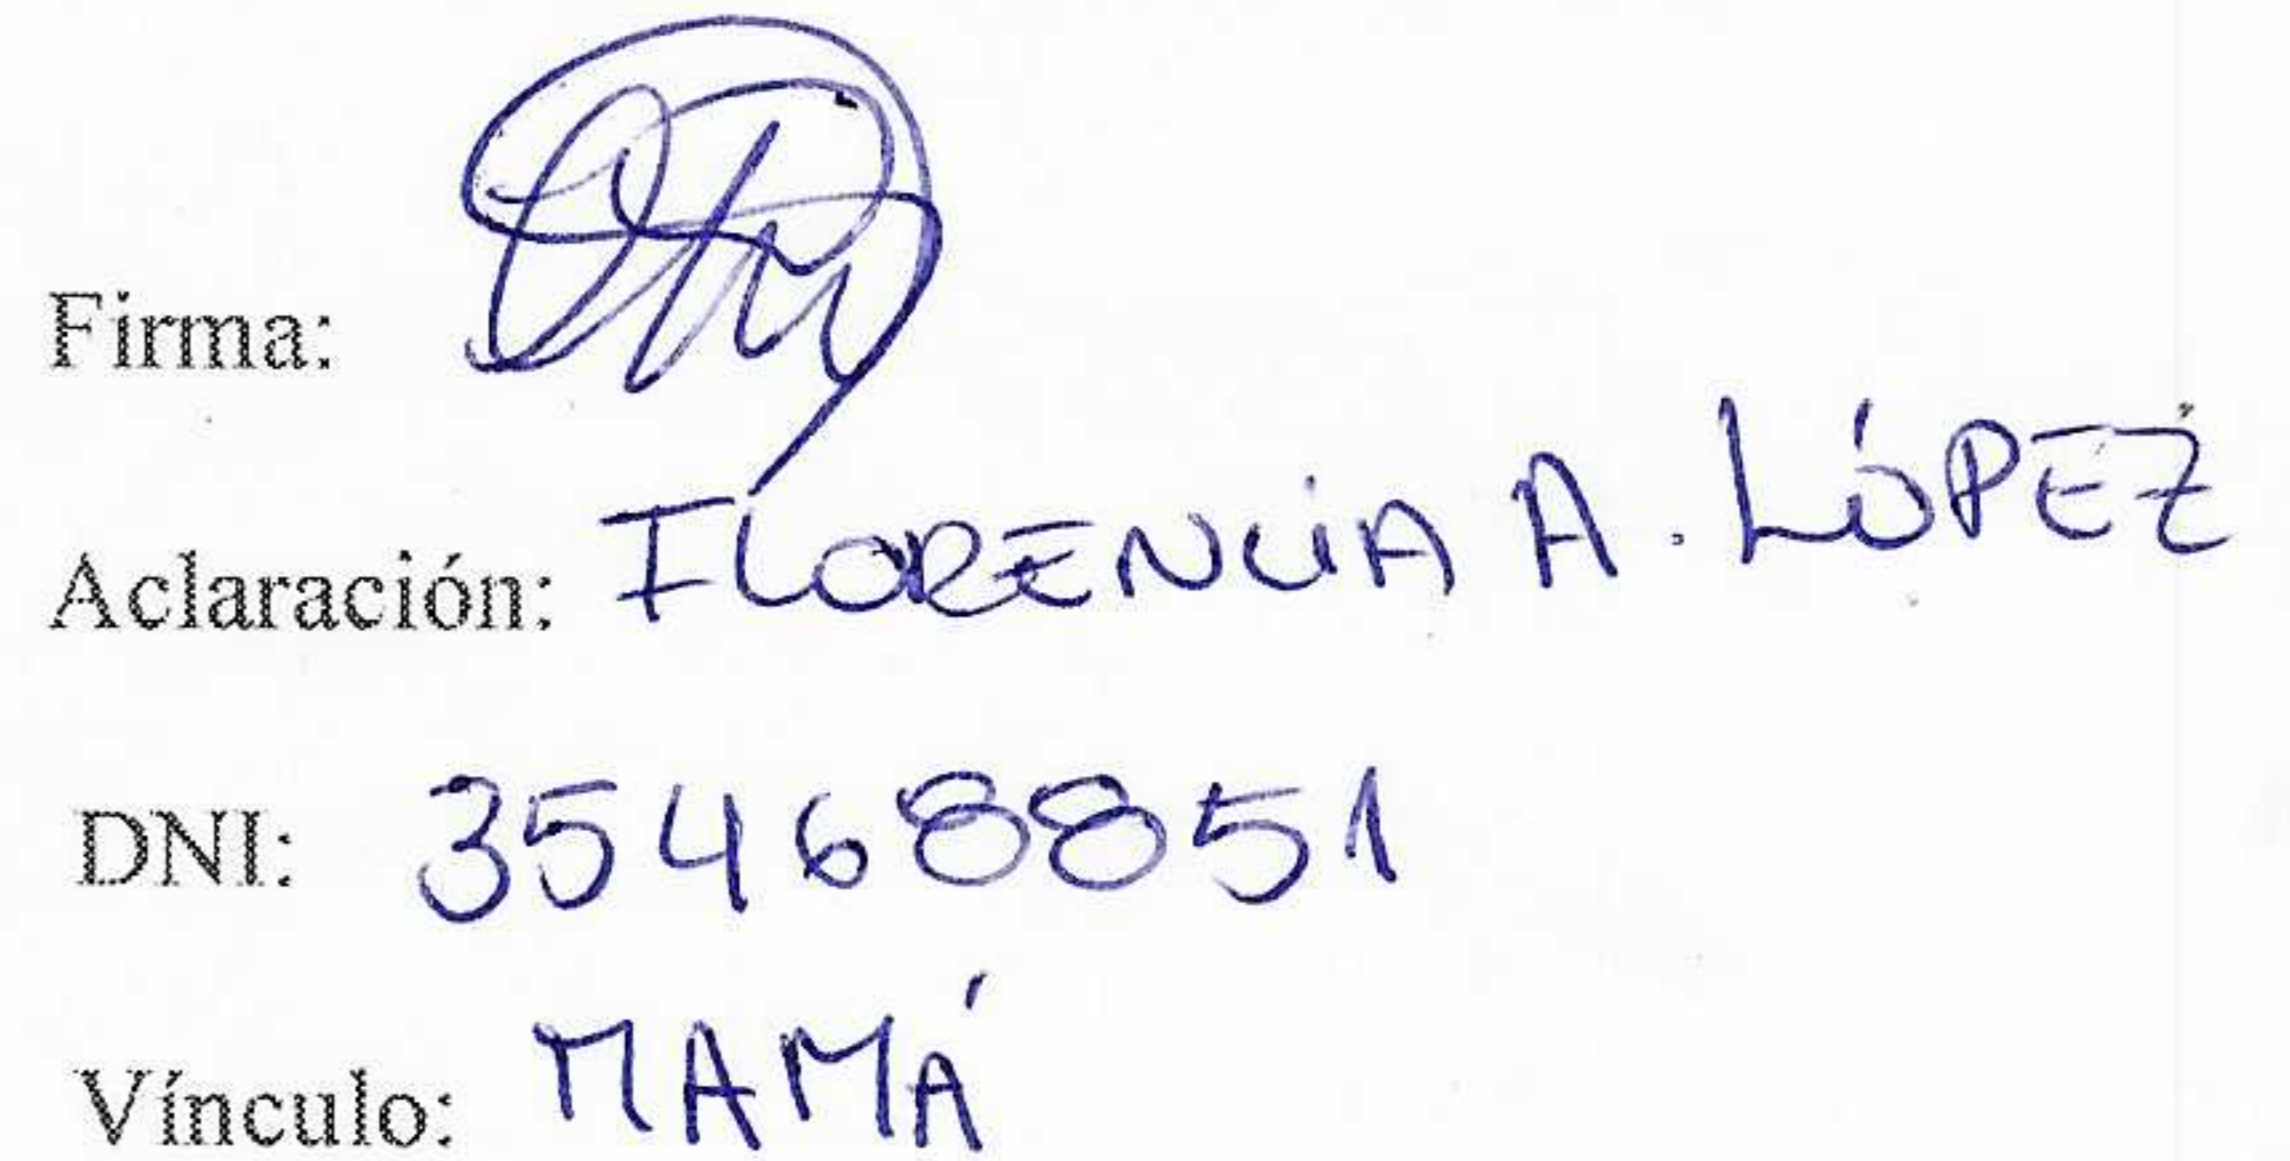 Firma:
Aclaración: FLORENCIA A. LÓPEZ
DNI: 35468851
Vínculo: MAMÁ